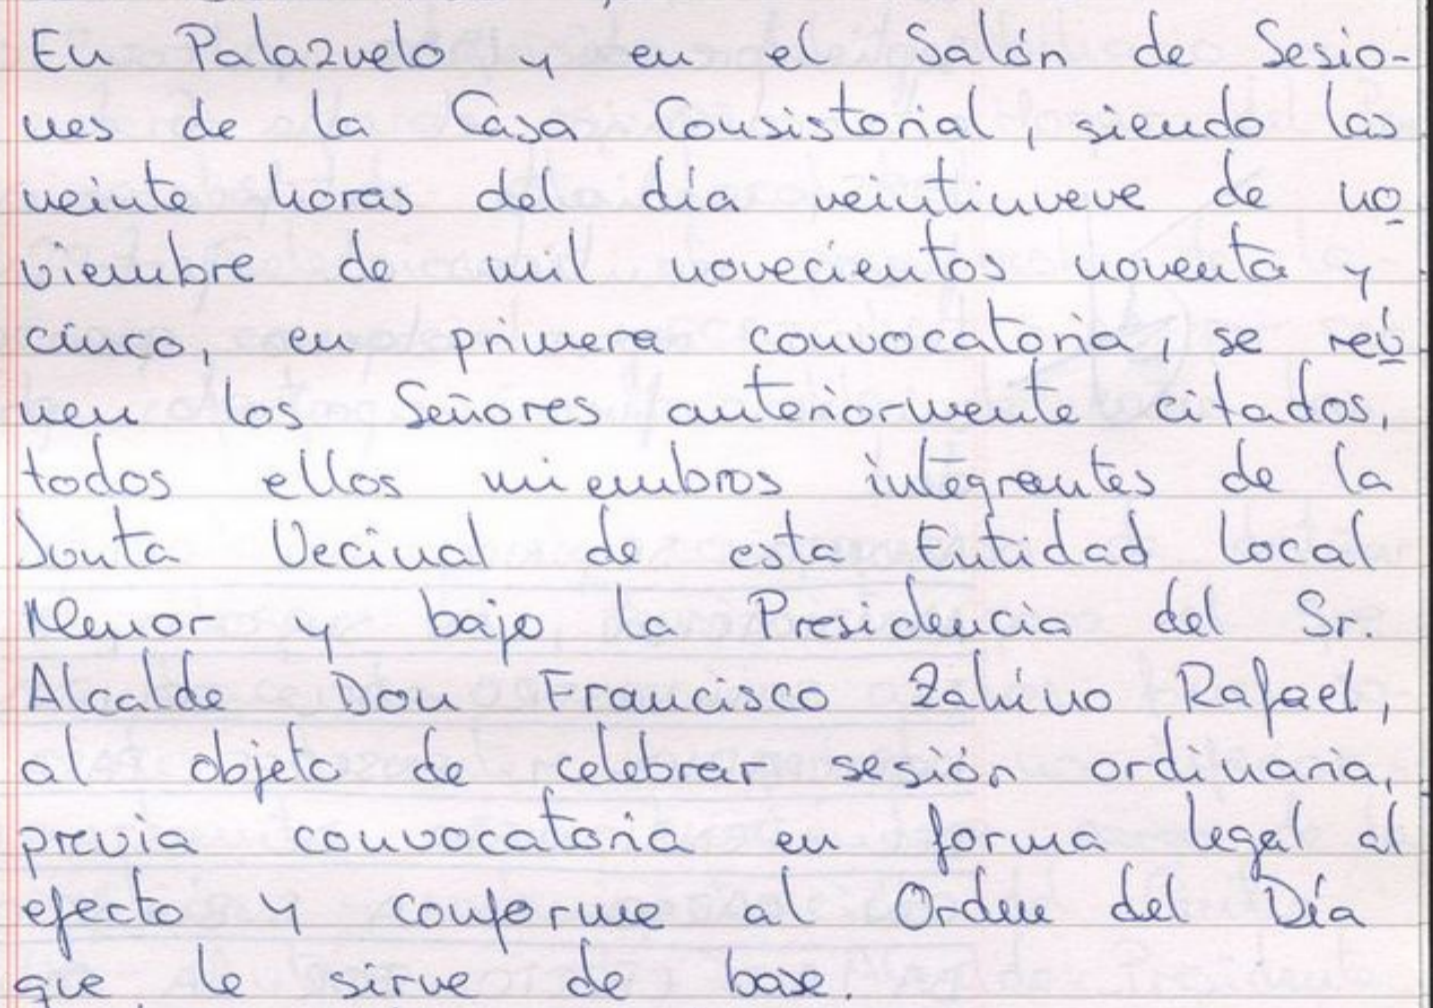 En Palazuelo y en el Salón de Sesio-
nes de la Casa Consistorial, siendo las
veinte horas del día veintinueve de no
viembre de mil novecientos noventa y
cinco, en primera convocatoria, se reú
nen los Señores anteriormente citados,
todos ellos miembros integrantes de la
Junta Vecinal de esta Entidad Local
Menor y bajo la Presidencia del Sr.
Alcalde Don Francisco Zahino Rafael,
al objeto de celebrar sesión ordinaria,
previa convocatoria en forma legal al
efecto y conforme al Orden del Día
que le sirve de base.